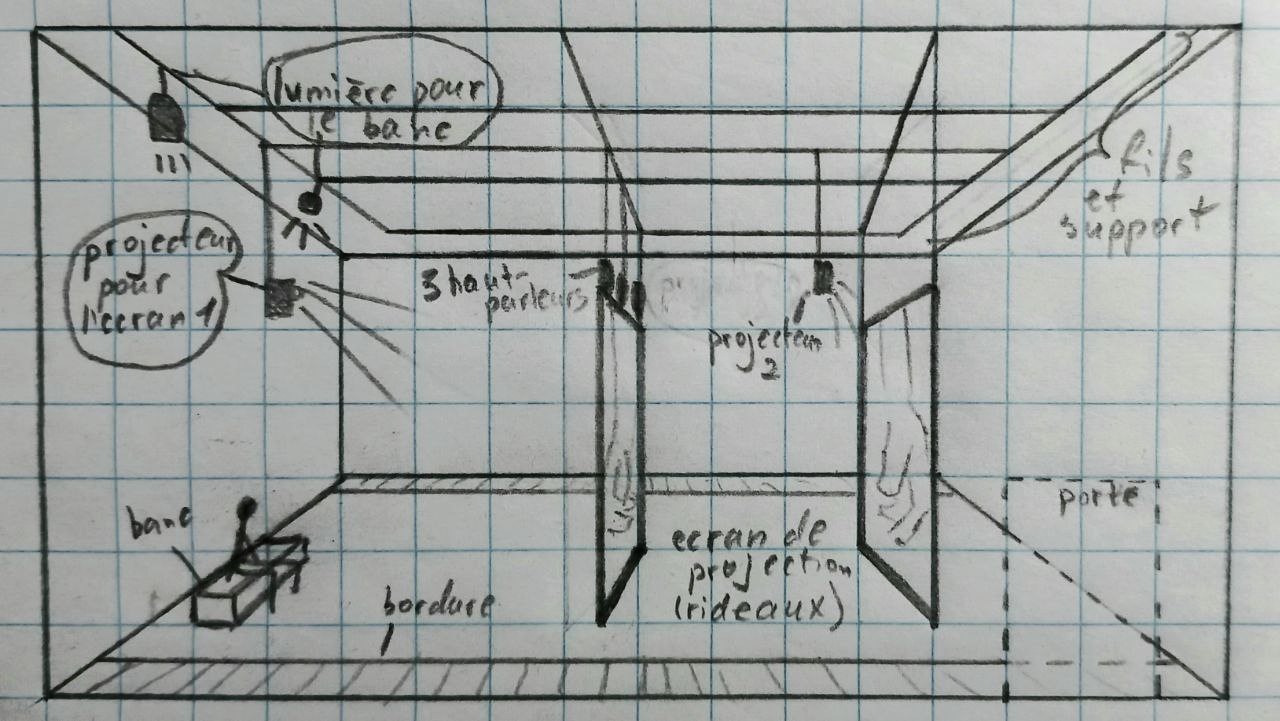 lumière pour
le banc
fils
et
support
projecteur
pour
l'ecran 1
3 haut-
parleurs
projecteur
2
porte
banc
ecran de
projection
(rideaux)
bordure